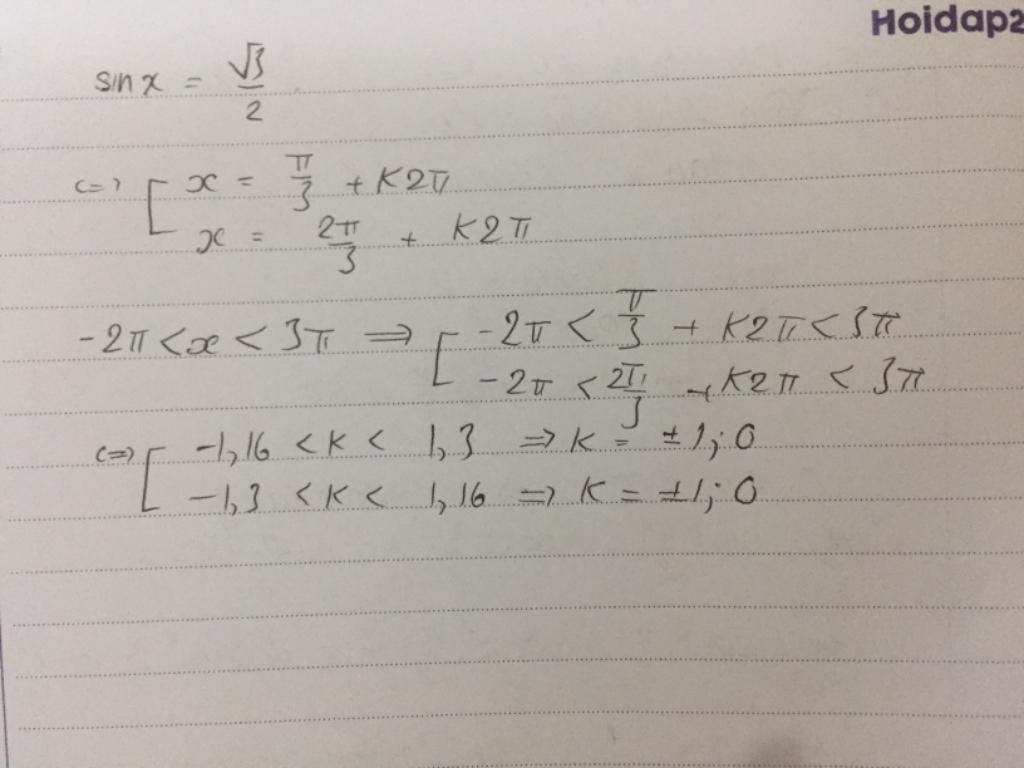 Hoidap2
sin x = √3/2
<=> [ x = π/3 + K2π
x = 2π/3 + K2π
-2π < x < 3π => [ -2π < π/3 + K2π < 3π
-2π < 2π/3 + K2π < 3π
<=> [ -1,16 < K < 1,3 => K = ±1; 0
-1,3 < K < 1,16 => K = ±1; 0